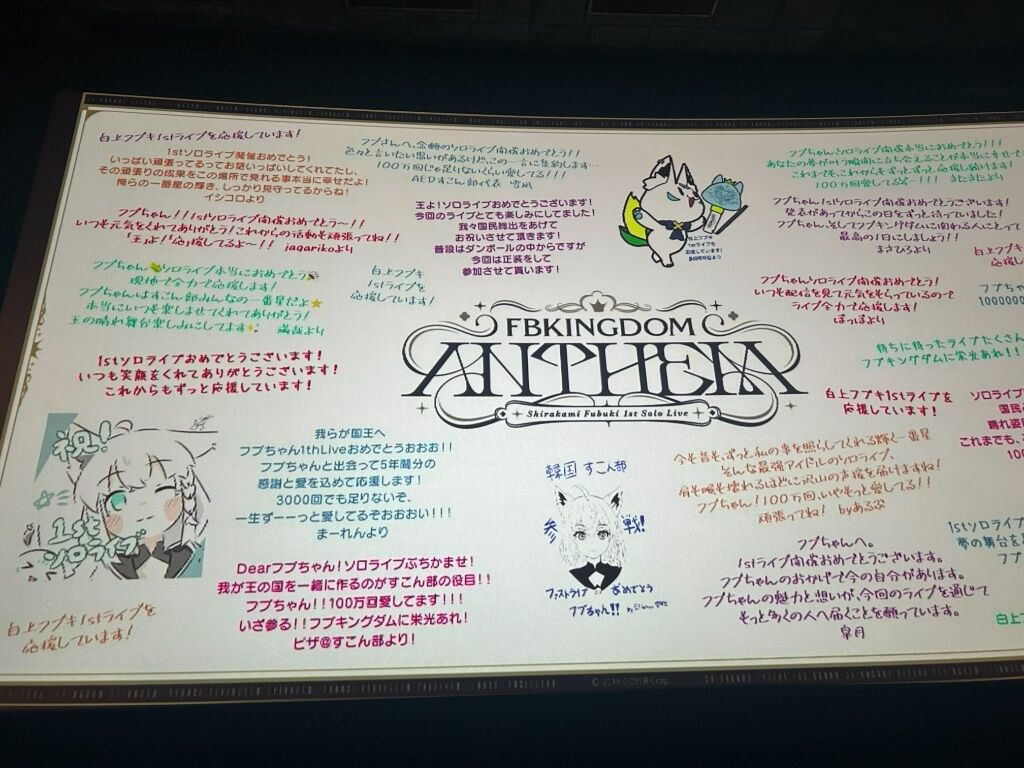 白上フブキ1stライブを応援しています!
1stソロライブ開催おめでとう!
いっぱい頑張ってるってお話いっぱいしてくれてたし、
その頑張りの成果をこの場所で見れる事本当に幸せだよ!
俺らの一番星の輝き、しっかり見守ってるからね!
イシコロより
フブちゃん!!1stソロライブ開催おめでとう〜!!
いつも元気をくれてありがとう!これからの活動も頑張ってね!!
「王よ!」応援してるよ〜!! jagarikoより
フブちゃん ソロライブ本当におめでとう
現地で全力で応援します!
フブちゃんはすこん部みんなの一番星だよ
本当にいつも楽しませてくれてありがとう!
王の晴れ舞台楽しみにしてます 満哉より
1stソロライブおめでとうございます!
いつも笑顔をくれてありがとうございます!
これからもずっと応援しています!
白上フブキ
1stライブを
応援しています!
フブさんへ、念願のソロライブ開催おめでとう!!
色々と言いたい思いがあるけど、この一言に集約します…
100万回じゃ足りないくらい愛してる!!!
AEDすこん部代表 雪風
王よ!ソロライブおめでとうございます!
今回のライブとても楽しみにしてました!
我々国民総出をあげて
お祝いさせて頂きます!
普段はダンボールの中からですが
今回は正装をして
参加させて貰います!
白上フブキ
1stライブを
応援しています!
フブちゃんソロライブ開催本当におめでとう!
あなたの夢が叶う瞬間に立ち会えることが本当に幸せで
これまでも、これからもずっとずっと応援し続けます!
100万回愛してるぞー!!! きたきたより
フブちゃん!1stソロライブ開催おめでとうございます!
発表があってからこの日をずっと待っていました!
フブちゃん、そしてフブキングダムに関わる人にとって
最高の1日にしましょう!!
まさひろより
白上フ
応援し
フブちゃん1stソロライブおめでとう!
いつも配信を見て元気をもらっているので
ライブ全力で応援します!
ぱっぱより
フブち
1000000
待ちに待ったライブたくさん
フブキングダムに栄光あれ!!
FBKINGDOM
ANTHEM
Shirakami Fubuki 1st Solo Live
白上フブキ1stライブを
応援しています!
ソロライ
国民
晴れ姿
これまでも、
祝!
1st
ソロライブ
白上フブキ1stライブを
応援しています!
我らが国王へ
フブちゃん1thLiveおめでとうおおお!!
フブちゃんと出会って5年間分の
感謝と愛を込めて応援します!
3000回でも足りないぞ、
一生ずーーっと愛してるぞおおおい!!!
まーれんより
Dearフブちゃん!ソロライブぶちかませ!
我が王の国を一緒に作るのがすこん部の役目!!
フブちゃん!!100万回愛してます!!!
いざ参る!!フブキングダムに栄光あれ!
ピザ@すこん部より!
韓国 すこん部
参戦!
ファストライブ おめでとう
フブちゃん!!
今も昔も、ずっと私の事を照らしてくれる輝く一番星
そんな最強アイドルのソロライブ、
肩も喉も壊れるほどに沢山の声援を届けますね!
フブちゃん!100万回、いやもっと愛してる!!
頑張ってね! byあるぷ
フブちゃんへ。
1stライブ開催おめでとうございます。
フブちゃんのおかげで今の自分があります。
フブちゃんの魅力と想いが、今回のライブを通じて
もっと多くの人へ届くことを願っています。
皐月
1stソロライブ
夢の舞台を
フブ
白上
© 2016 COVER Corp.